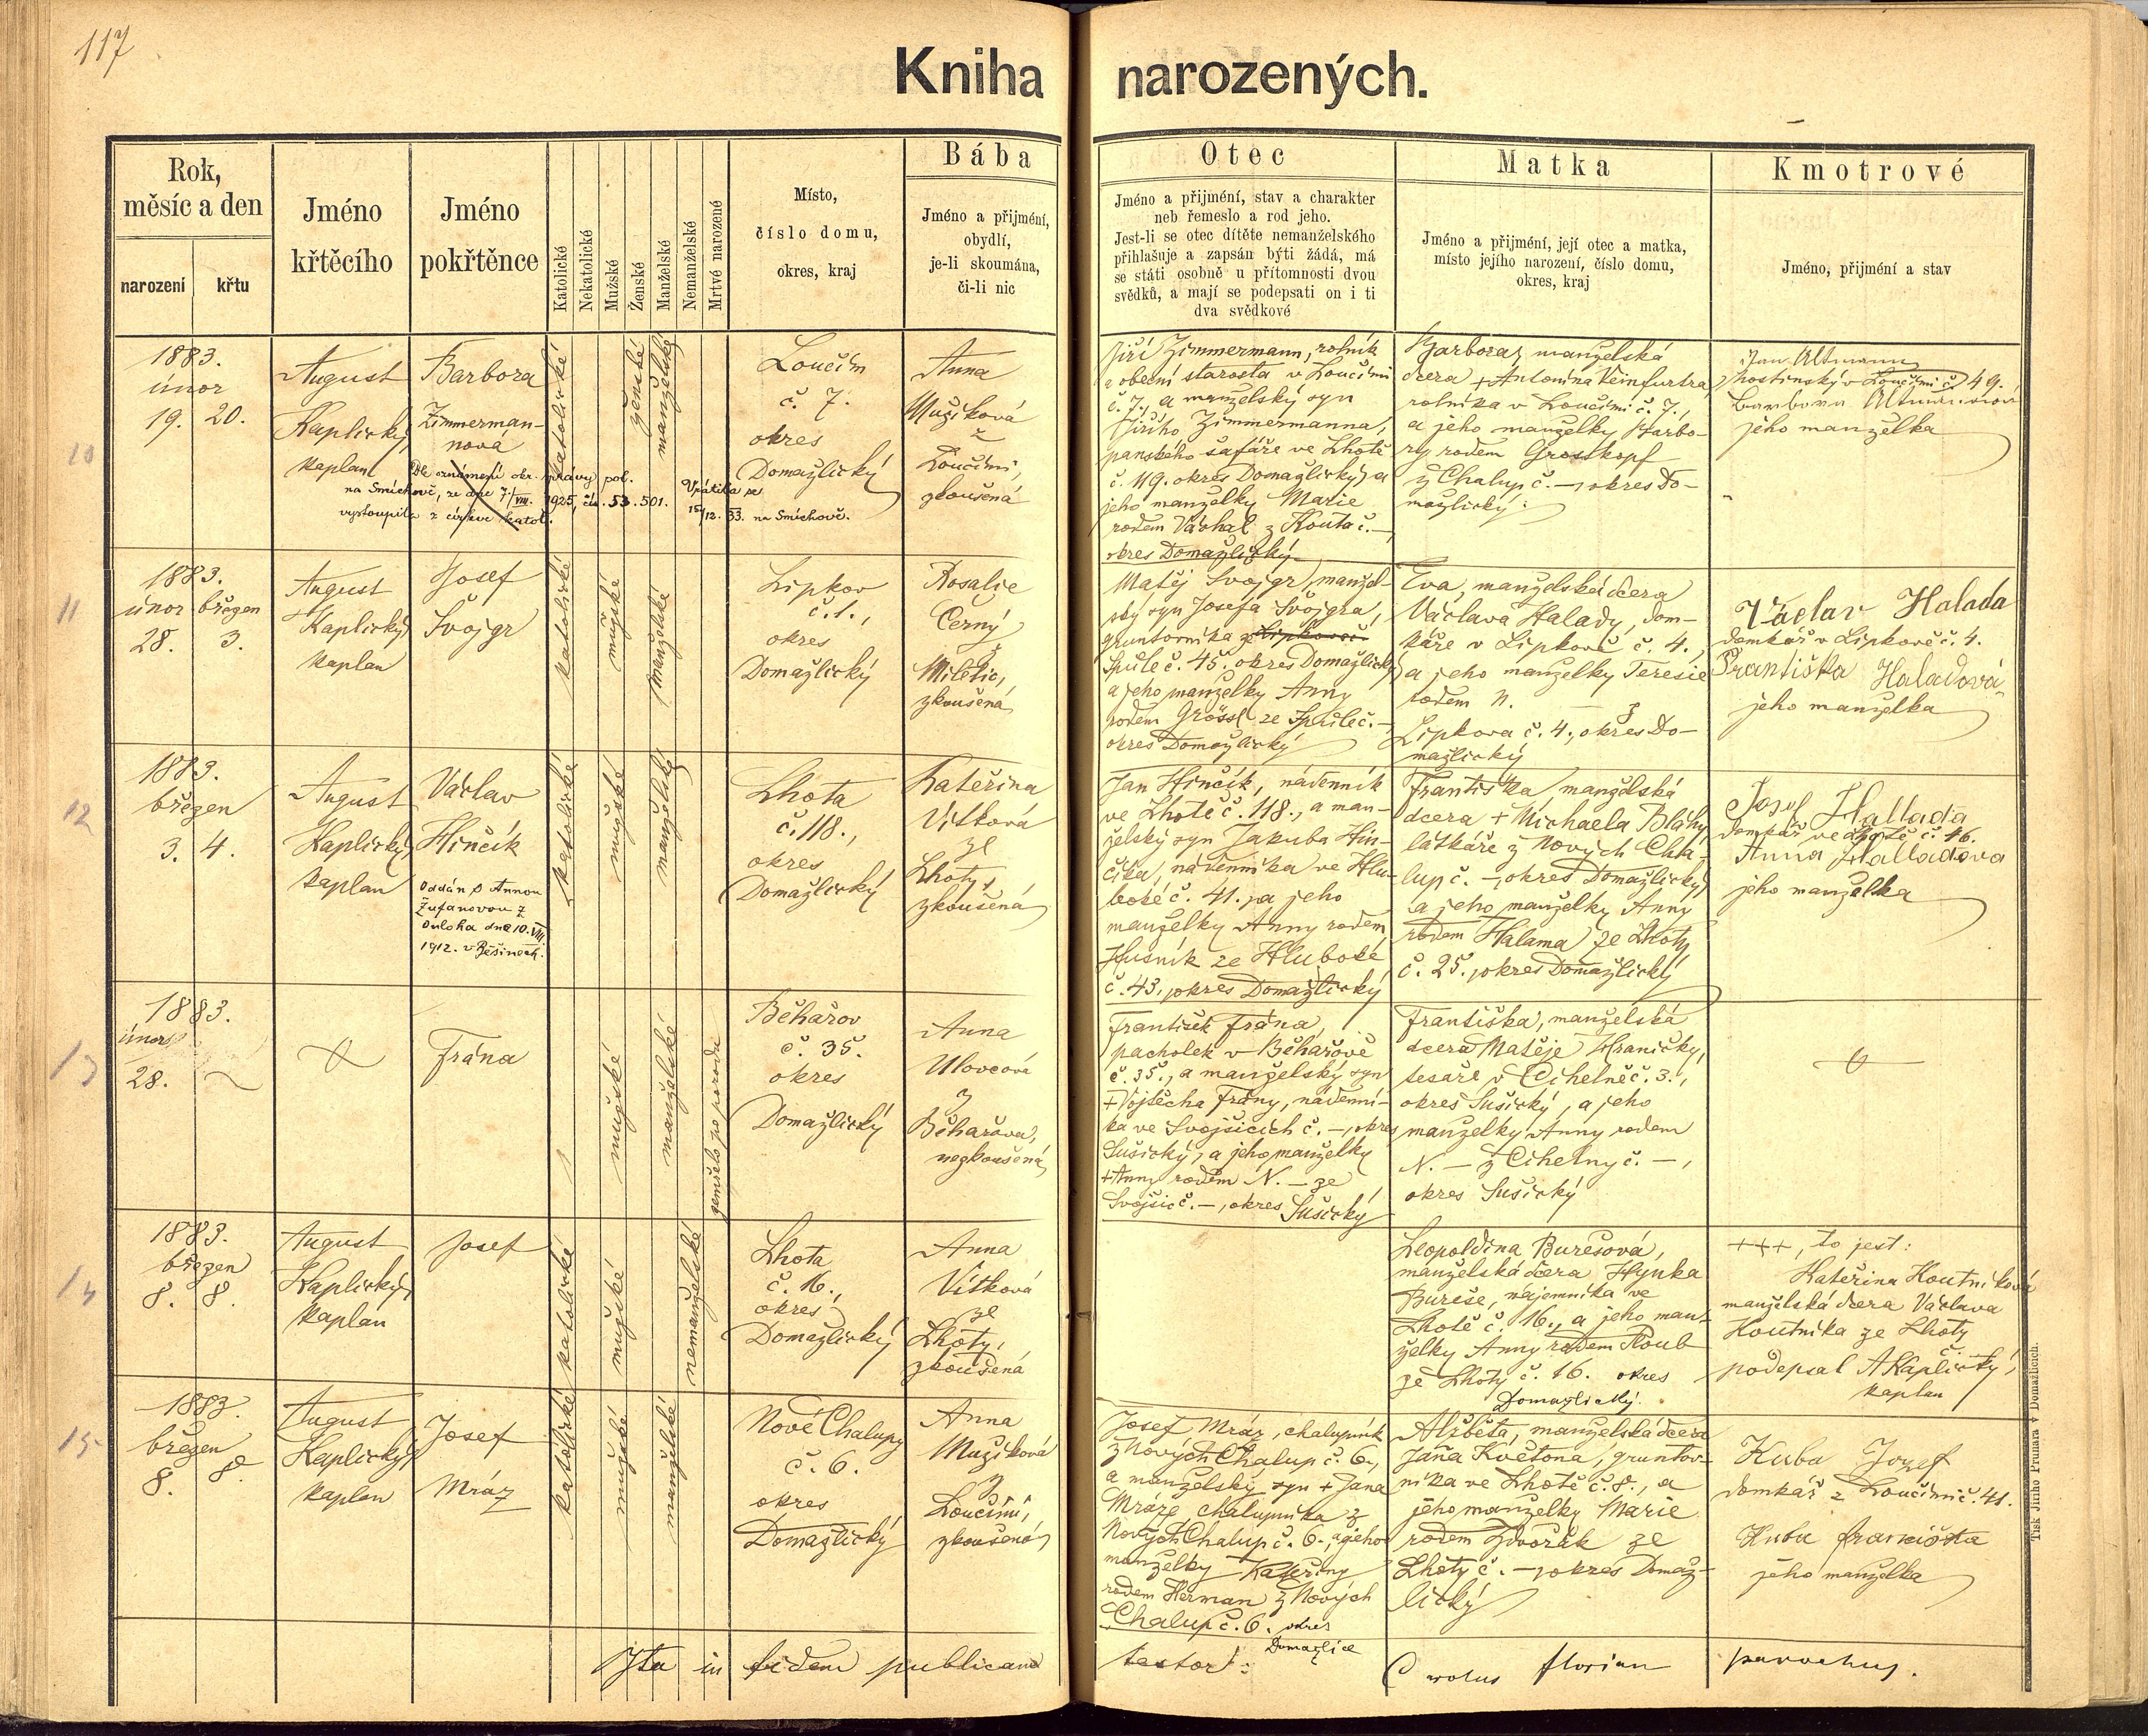 117
Kniha narozených.
Rok,
měsíc a den
narození
křtu
Jméno
křtěcího
Jméno
pokřtěnce
Katolické
Nekatolické
Mužské
Ženské
Manželské
Nemanželské
Mrtvé narozené
Místo,
číslo domu,
okres, kraj
Bába
Jméno a přijmění,
obydlí,
je-li skoumána,
či-li nic
Otec
Jméno a přijmění, stav a charakter
neb řemeslo a rod jeho.
Jest-li se otec dítěte nemanželského
přihlašuje a zapsán býti žádá, má
se státi osobně u přítomnosti dvou
svědků, a mají se podepsati on i ti
dva svědkové
Matka
Jméno a přijmění, její otec a matka,
místo jejího narození, číslo domu,
okres, kraj
Kmotrové
Jméno, přijmění a stav
10
1883.
únor
19. 20.
August
Kaplický,
kaplan
Barbora
Zimmerman-
nová
Dle oznámení okr. správy pol.
na Smíchově, ze dne 7./VIII. 1925, čís. 53.501.
vystoupila z církve katol.
Vrátila se
15/12. 33. na Smíchově.
katolické
ženské
manželské
Loučim
č. 7.
okres
Domažlický
Anna
Mužíková
z
Loučimi,
zkoušená
Jiří Zimmermann, rolník
a obecní starosta v Loučimi
č. 7., a manželský syn
Jiřího Zimmermanna,
panského šafáře ve Lhotě
č. 119. okres Domažlický, a
jeho manželky Marie
rodem Váchal z Kouta č. –,
okres Domažlický
Barbora, manželská
dcera + Antonína Veinfurtra,
rolníka v Loučimi č. 7.,
a jeho manželky Barbo-
ry rodem Grosskopf
z Chalup č. –, okres Do-
mažlický.
Jan Altmann
hostinský v Loučimi č. 49.
Barbora Altmanová
jeho manželka
11
1883.
únor březen
28. 3.
August
Kaplický,
kaplan
Josef
Švojgr
katolické
mužské
manželské
Lipkov
č. 1.,
okres
Domažlický
Rosalie
Černý
z
Miletic,
zkoušená
Matěj Švojgr, manžel-
ský syn Josefa Švojgra,
gruntovníka z Lipkova č.
Spůle č. 45. okres Domažlický,
a jeho manželky Anny
rodem Grössl ze Spůle č. –
okres Domažlický
Eva, manželská dcera
Václava Halady, dom-
káře v Lipkově č. 4.,
a jeho manželky Teresie
rodem N. – z
Lipkova č. 4., okres Do-
mažlický
Václav Halada
domkář v Lipkově č. 4.
Františka Haladová
jeho manželka
12
1883.
březen
3. 4.
August
Kaplický,
kaplan
Václav
Hinčík
Oddán s Annou
Žufanovou z
Ouloha dne 10. VIII.
1912. v Běšinech.
katolické
mužské
manželské
Lhota
č. 118.,
okres
Domažlický
Kateřina
Vítková
ze
Lhoty,
zkoušená
Jan Hinčík, nádenník
ve Lhotě č. 118., a man-
želský syn Jakuba Hin-
číka, nádenníka ve Hlu-
boké č. 41., a jeho
manželky Anny rodem
Husník ze Hluboké
č. 43., okres Domažlický
Františka, manželská
dcera + Michaela Bláhy
látkáře z Nových Cha-
lup č. –, okres Domažlický,
a jeho manželky Anny
rodem Halama ze Lhoty
č. 25., okres Domažlický
Josef Hallada
domkář ve Lhotě č. 46.
Anna Halladova
jeho manželka
13
1883.
února
28.
Frána
mužské
manželské
zemřelo po porodu
Běhařov
č. 35.
okres
Domažlický
Anna
Ulovcová
z
Běhařova,
nezkoušená
František Frána,
pacholek v Běhařově
č. 35., a manželský syn
+ Vojtěcha Frány, nádenní-
ka ve Svojšicích č. –, okres
Sušický, a jeho manželky
+ Anny rodem N. – ze
Svojšic č. –, okres Sušický
Františka, manželská
dcera Matěje Hraničky,
tesaře v Cihelně č. 3.,
okres Sušický, a jeho
manželky Anny rodem
N. – z Cihelny č. –,
okres Sušický
14
1883.
březen
8. 8.
August
Kaplický,
kaplan
Josef
katolické
mužské
nemanželské
Lhota
č. 16.,
okres
Domažlický
Anna
Vítková
ze
Lhoty,
zkoušená
Leopoldina Burešová,
manželská dcera Hynka
Bureše, nájemníka ve
Lhotě č. 16., a jeho man-
želky Anny rodem Roub
ze Lhoty č. 16. okres
Domažlický.
+++, to jest:
Kateřina Koutníková
manželská dcera Václava
Koutníka ze Lhoty
podepsal A Kaplický,
kaplan
15
1883.
březen
8. 8.
August
Kaplický,
kaplan
Josef
Mráz
katolické
mužské
manželské
Nové Chalupy
č. 6.
okres
Domažlický
Anna
Mužíková
z
Loučimi,
zkoušená
Josef Mráz, chalupník
z Nových Chalup č. 6.,
a manželský syn + Jana
Mráze chalupníka z
Nových Chalup č. 6., a jeho
manželky Kateřiny
rodem Herman z Nových
Chalup č. 6. okres
Domažlice
Alžběta, manželská dcera
Jana Květona, gruntov-
níka ve Lhotě č. 8., a
jeho manželky Marie
rodem Dvořák ze
Lhoty č. –, okres Domaž-
lický
Kuba Jozef
domkář z Loučimi č. 41.
Kuba františka
jeho manželka
Ita in fidem publicam testor:
Carolus Florian parochus.
Tisk Jiřího Prunara v Domažlicích.